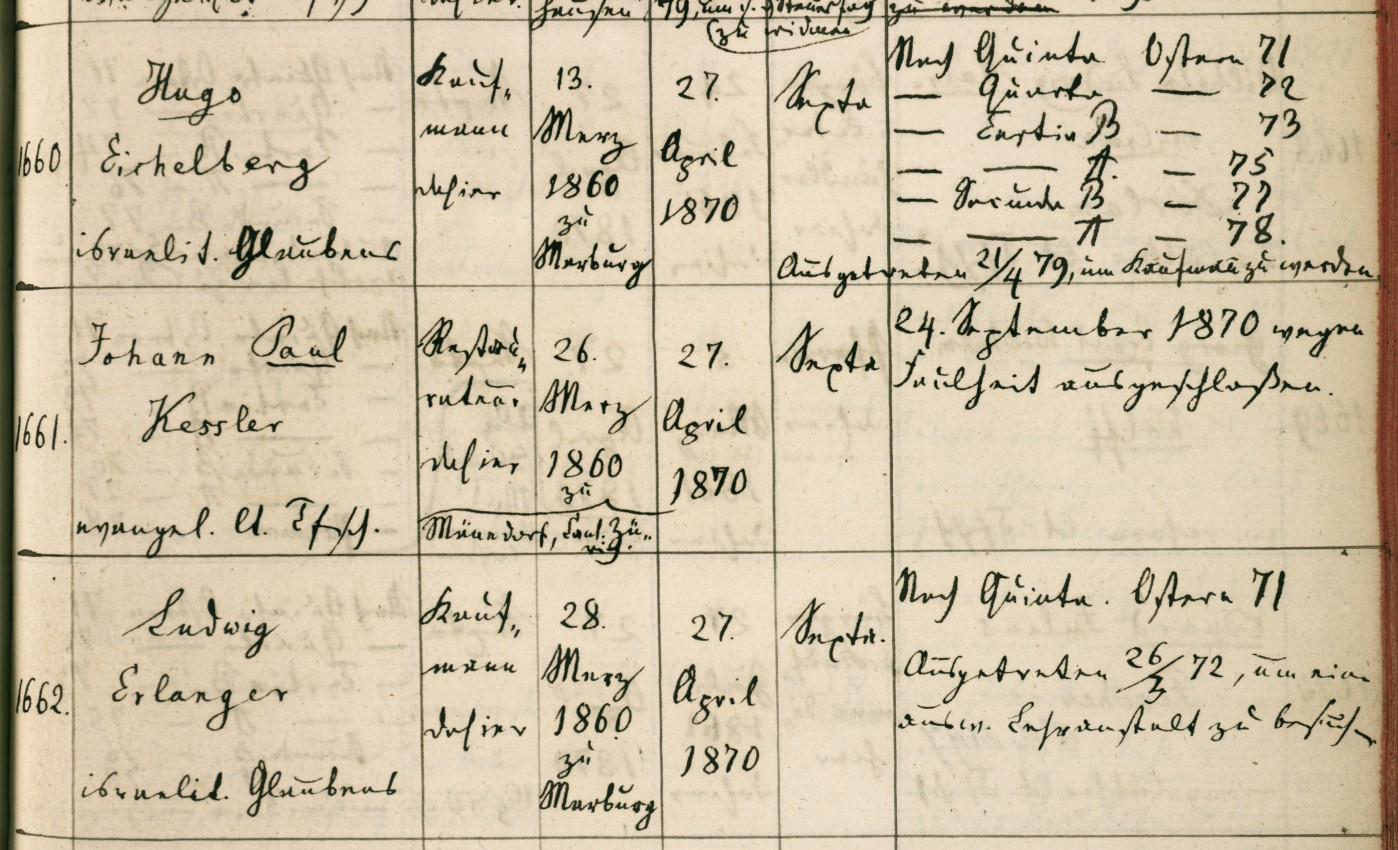 hausen
79, um s. d. Steuerfach
zu widmen
zu werden
1660
Hugo
Eichelberg
israelit. Glaubens
Kauf„
mann
dahier
13.
Merz
1860
zu
Marburg
27.
April
1870
Sexta
Nach Quinta Ostern 71
— Quarta — 72
— Tertia B — 73
— — A. — 75
— Secunda B — 77
— — A — 78.
Ausgetreten 21/4 79, um Kaufmann zu werden.
1661.
Johann Paul
Kessler
evangel. lt. Tfsch.
Restau„
rateur
dahier
26.
Merz
1860
zu
Mänedorf, Cant. Zü„
rich.
27.
April
1870
Sexta
24. September 1870 wegen
Faulheit ausgeschloßen.
1662.
Ludwig
Erlanger
israelit. Glaubens
Kauf„
mann
dahier
28.
Merz
1860
zu
Marburg
27.
April
1870
Sexta.
Nach Quinta. Ostern 71
Ausgetreten 26/3 72, um eine
ausw. Lehranstalt zu besuchen